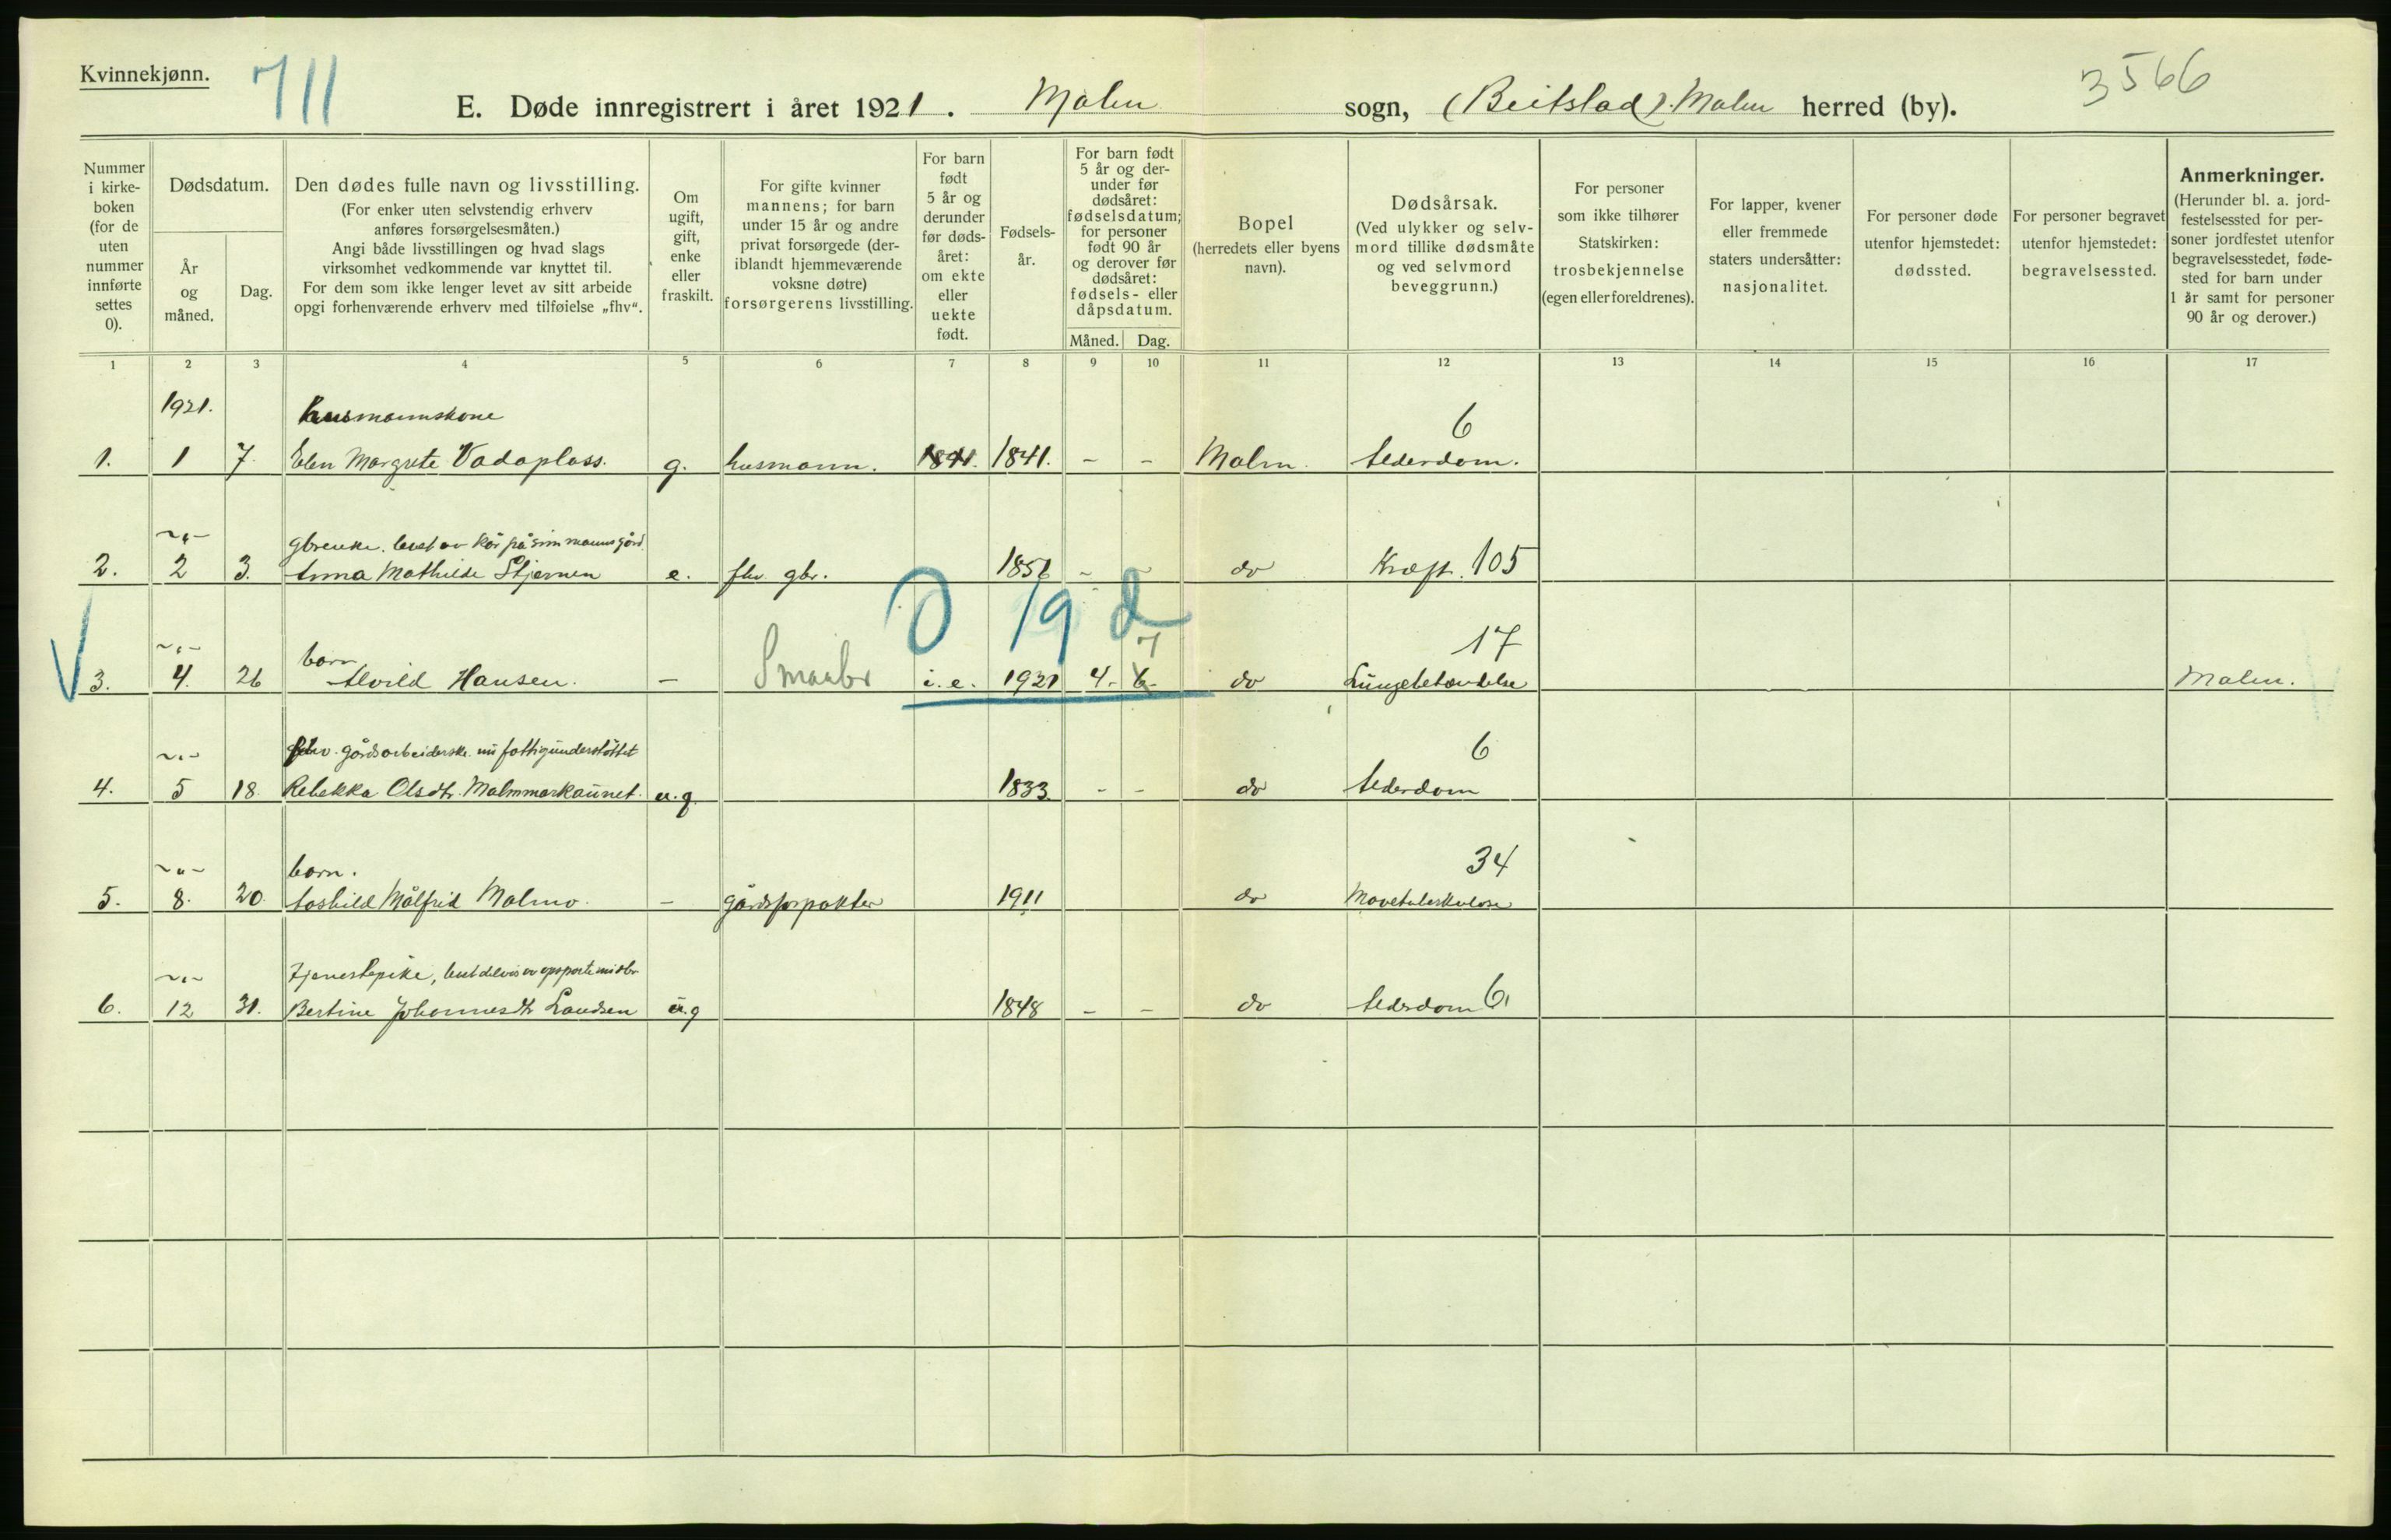 Kvinnekjønn.
711
3566
E. Døde innregistrert i året 1921. Malm sogn, (Beitstad). Malm herred (by).
Nummer i kirke- boken (for de uten nummer innførte settes 0).
Dødsdatum.
År og måned.
Dag.
Den dødes fulle navn og livsstilling.
(For enker uten selvstendig erhverv
anføres forsørgelsesmåten.)
Angi både livsstillingen og hvad slags
virksomhet vedkommende var knyttet til.
For dem som ikke lenger levet av sitt arbeide
opgi forhenværende erhverv med tilføielse „fhv“.
Om ugift, gift, enke eller fraskilt.
For gifte kvinner
mannens; for barn
under 15 år og andre
privat forsørgede (der-
iblandt hjemmeværende
voksne døtre)
forsørgerens livsstilling.
For barn født 5 år og derunder før døds- året: om ekte eller uekte født.
Fødsels- år.
For barn født
5 år og der-
under før
dødsåret:
fødselsdatum;
for personer
født 90 år
og derover før
dødsåret:
fødsels- eller
dåpsdatum.
Måned. Dag.
Bopel
(herredets eller byens
navn).
Dødsårsak.
(Ved ulykker og selv-
mord tillike dødsmåte
og ved selvmord
beveggrunn.)
For personer
som ikke tilhører
Statskirken:
trosbekjennelse
(egen eller foreldrenes).
For lapper, kvener
eller fremmede
staters undersåtter:
nasjonalitet.
For personer døde
utenfor hjemstedet:
dødssted.
For personer begravet
utenfor hjemstedet:
begravelsessted.
Anmerkninger.
(Herunder bl. a. jord-
festelsessted for per-
soner jordfestet utenfor
begravelsesstedet, føde-
sted for barn under
1 år samt for personer
90 år og derover.)
1 2 3 4 5 6 7 8 9 10 11 12 13 14 15 16 17
1921. husmannskone 6
1. 1 7. Elen Margrete Vadaplass. g. husmann. 1841. 1841. - - Malm. Alderdom.
~„- gbrenke. levet av kår på sin manns gård
2. 2 3. Anna Mathilde Stjernen e. fhv. gbr. 1856 - - do Kræft. 105
0 19 d
~„- barn 7 17
V 3. 4. 26 Alvild Hansen. - Smaabr i.e. 1921 4. 6 do Lungebetændelse Malm.
~„- fhv. gårdsarbeiderske. nu fattigunderstøttet 6
4. 5 18. Rebekka Olsdtr. Malmmarkaunet. u.g. 1833. - - do Alderdom
~„- barn. 34
5. 8. 20. Aashild Målfrid Malmo. - gårdsforpakter 1911 do Mavetuberkulose
~„- Tjenestepike, levet delvis av opsparte midler
6. 12 31. Bertine Johannesdtr Landsen u.g 1848 - - do Alderdom 6